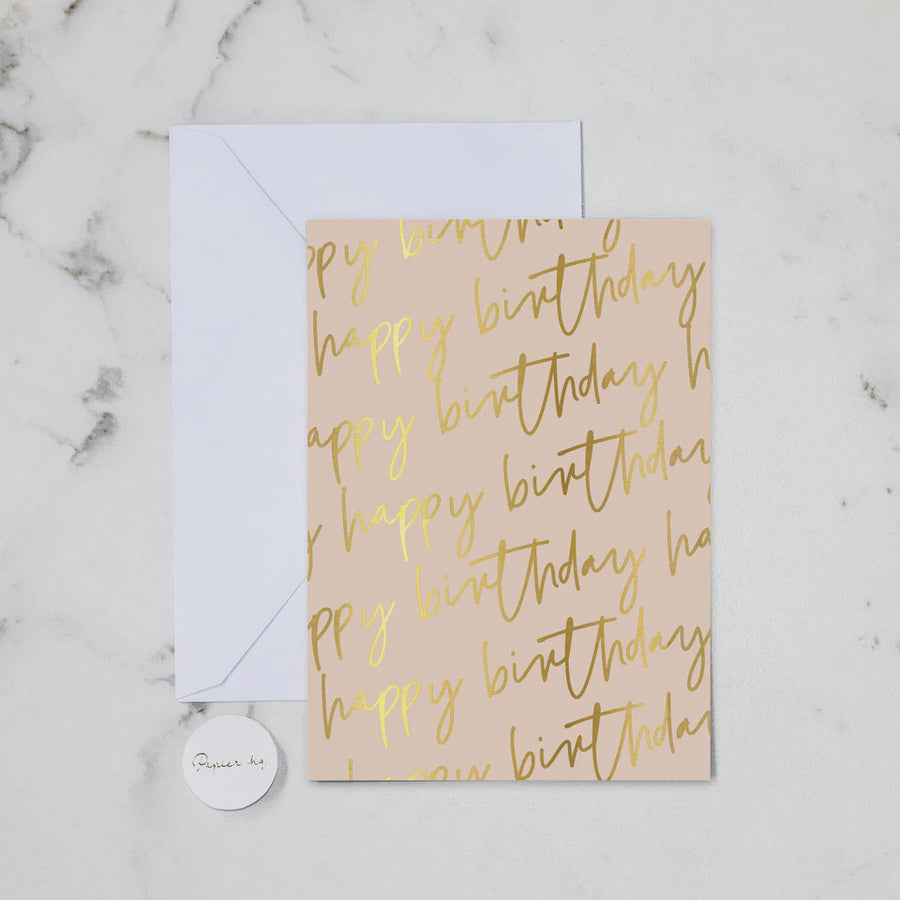 ppy birthday
happy birthday
appy birthday h
y happy birthday
ppy birthday ha
happy birthday
happy birthday
Papier hq